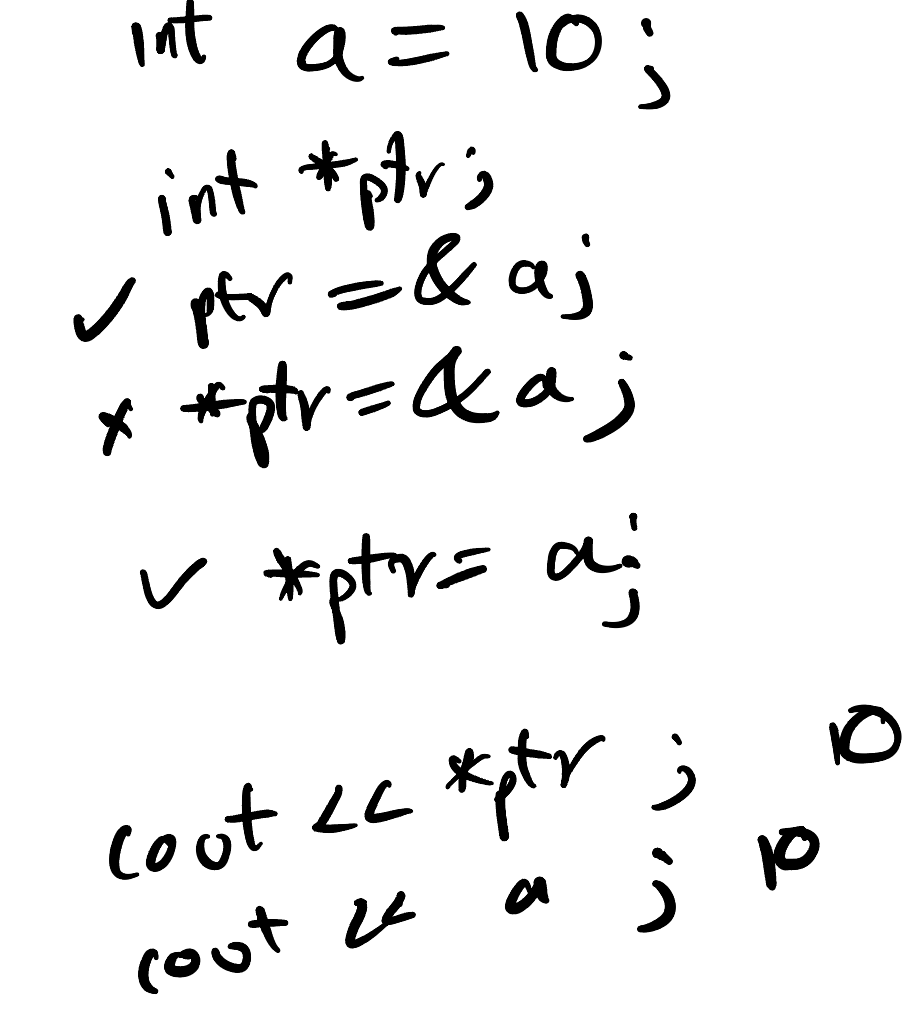 int a = 10 ;
int *ptr ;
✓ ptr = & a ;
x *ptr = & a ;
✓ *ptr = a ;
cout << *ptr ; 10
cout << a ; 10